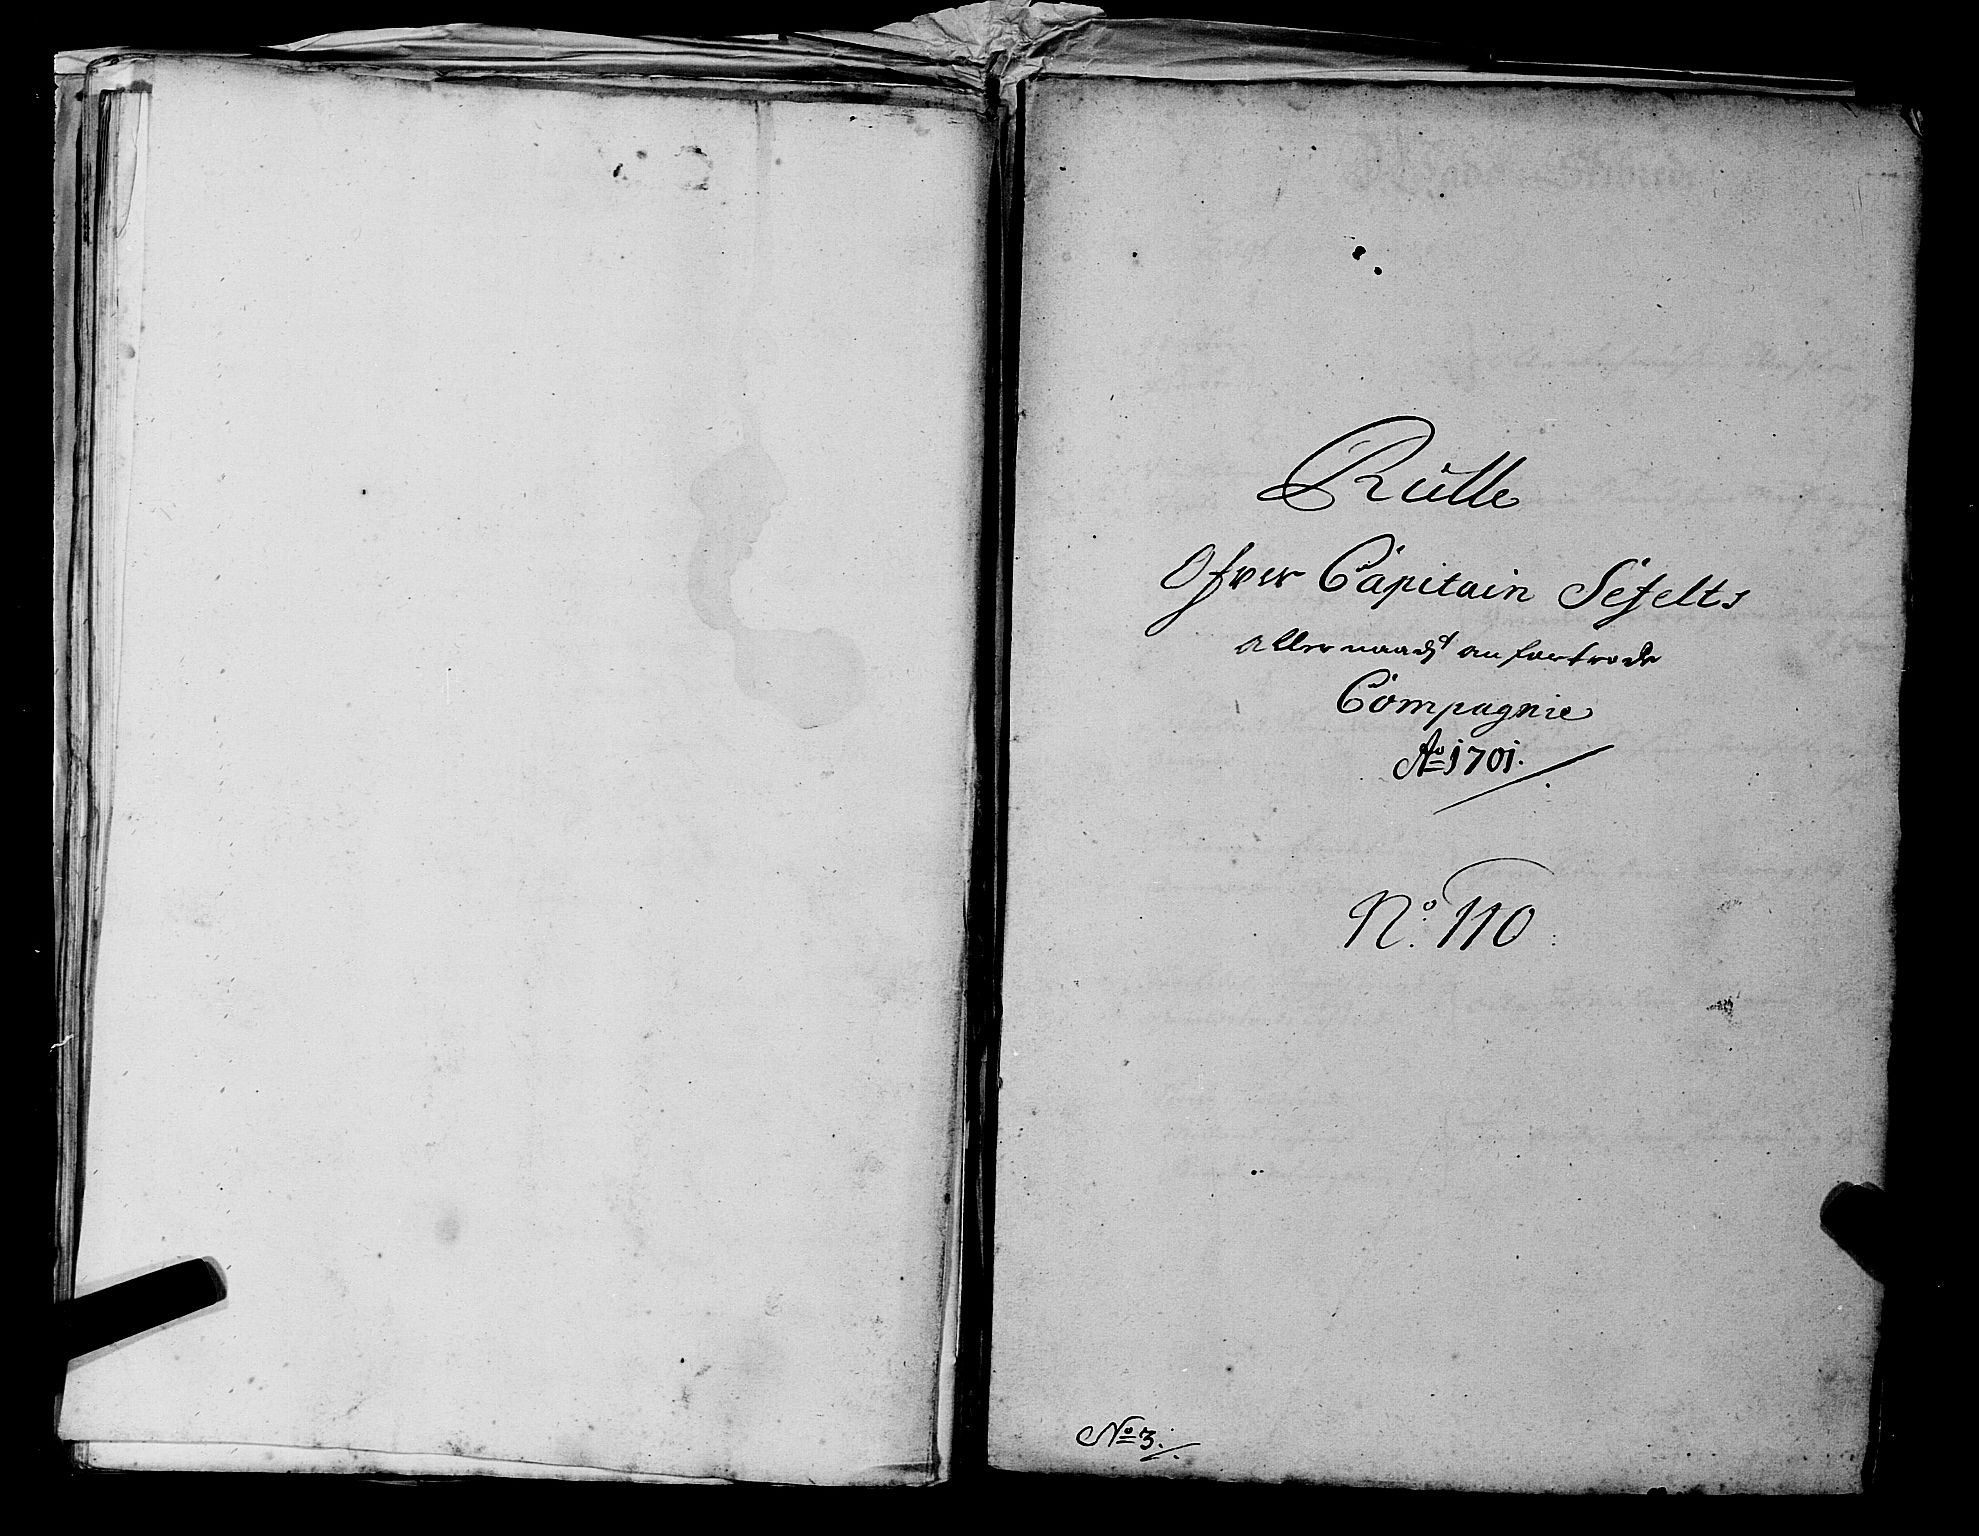 Rulle
Ofver Capitain Sefelts
allernaadst anfortrode
Compagnie
Ao 1701.
No. 110
No 3.